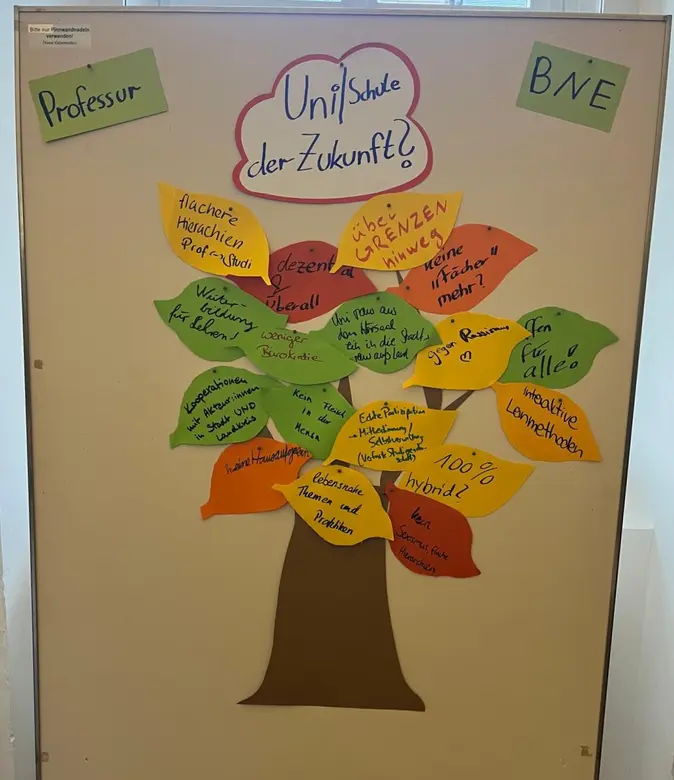 Bitte nur Pinnwandnadeln
verwenden!
Professur
Uni/Schule
der Zukunft?
BNE
flachere
Hierachien
Prof ↔ Studi
über
GRENZEN
hinweg
dezentral
&
überall
keine
"Fächer"
mehr?
Weiter-
bildung
für Lehre!
weniger
Bürokratie
Uni raus aus
dem Hörsaal
rein in die Stadt,
raus aufs Land
gegen Rassismus
♡
für
alle!
Kooperationen
mit Akteur:innen
in Stadt UND
Landkreis
Kein Fleisch
in der
Mensa
Echte Partizipation
→ Mitbestimmung/
Selbstverwaltung
(Verfasste Studierenden-
schaft)
Interaktive
Lernmethoden
keine Hausaufgaben
100%
hybrid?
lebensnahe
Themen und
Praktiken
kein
Sexismus, flache
Hierarchien